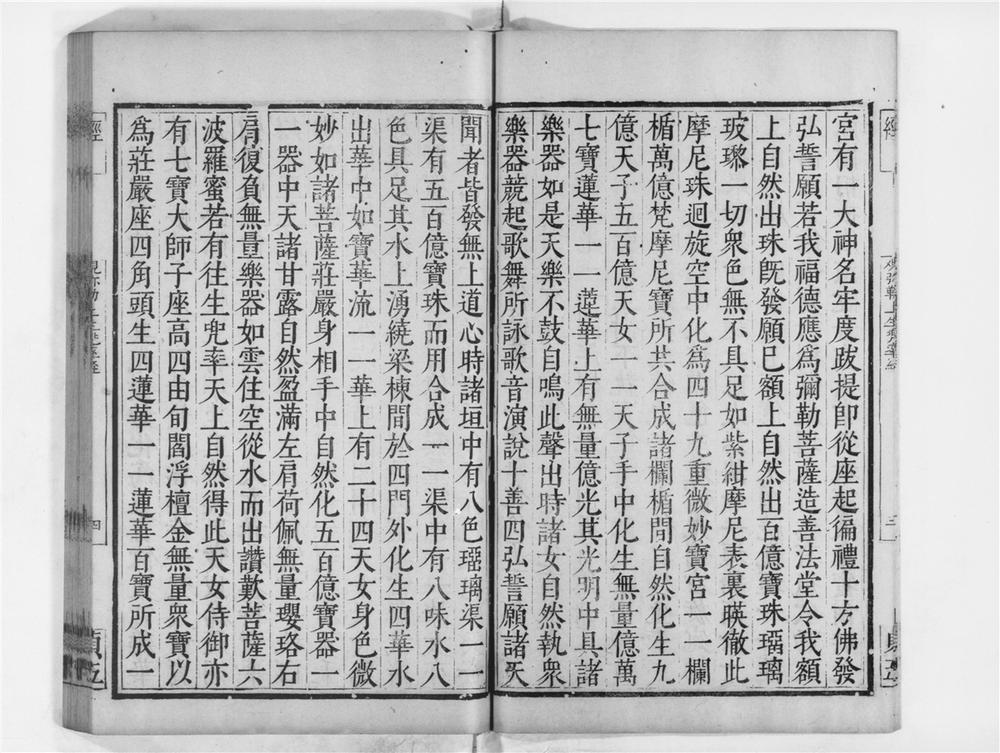 宮有一大神名牢度跋提即從座起徧禮十方佛發
弘誓願若我福德應爲彌勒菩薩造善法堂令我額
上自然出珠旣發願已額上自然出百億寶珠瑠璃
玻瓈一切衆色無不具足如紫紺摩尼表裏暎徹此
摩尼珠迴旋空中化爲四十九重微妙寶宮一一欄
楯萬億梵摩尼寶所共合成諸欄楯間自然化生九
億天子五百億天女一一天子手中化生無量億萬
七寶蓮華一一蓮華上有無量億光其光明中具諸
樂器如是天樂不鼓自鳴此聲出時諸女自然執衆
樂器競起歌舞所詠歌音演說十善四弘誓願諸天
聞者皆發無上道心時諸垣中有八色瑠璃渠一一
渠有五百億寶珠而用合成一一渠中有八味水八
色具足其水上湧繞梁棟間於四門外化生四華水
出華中如寶華流一一華上有二十四天女身色微
妙如諸菩薩莊嚴身相手中自然化五百億寶器一
一器中天諸甘露自然盈滿左肩荷佩無量瓔珞右
肩復負無量樂器如雲住空從水而出讚歎菩薩六
波羅蜜若有往生兜率天上自然得此天女侍御亦
有七寶大師子座高四由旬閻浮檀金無量衆寶以
爲莊嚴座四角頭生四蓮華一一蓮華百寶所成一
經
四